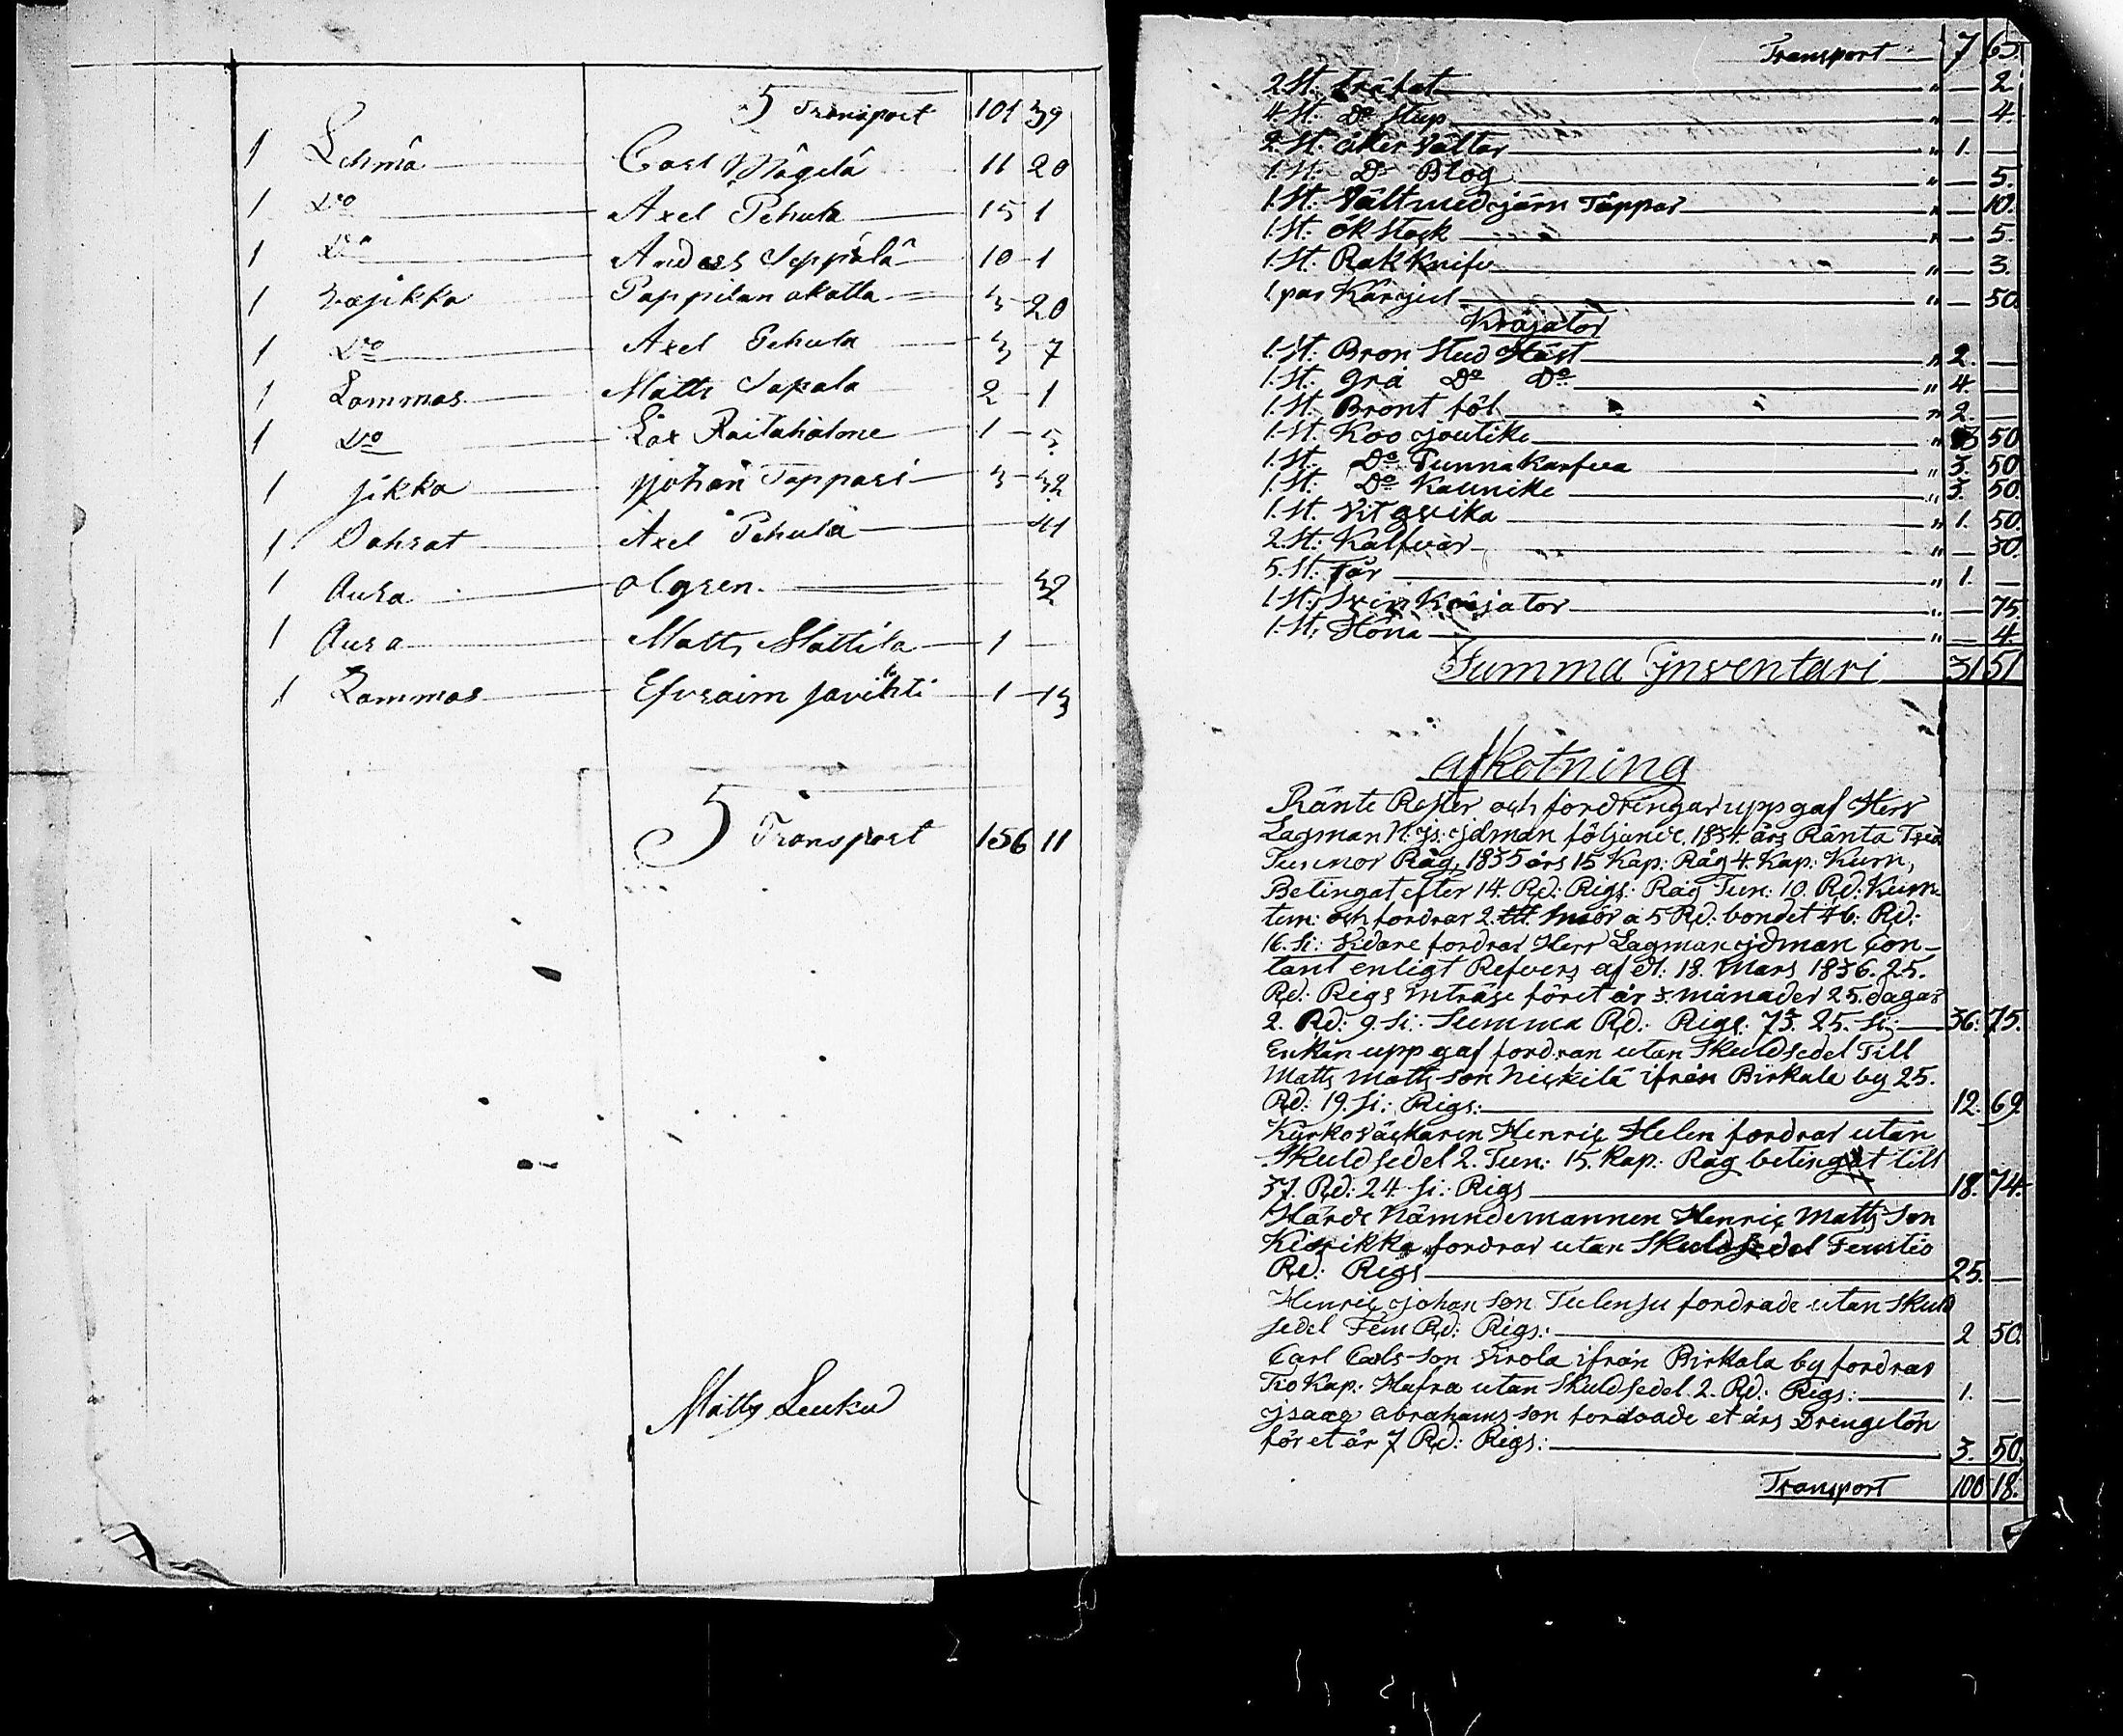 5 Transport 101 39
1 Lehmä Carl Mägelä 11 20
1 Do Axel Pehula 15 1
1 Do Anders Seppälä 10 1
1 Pappilan akalla 3 20
1 Do Axel Pehula 3 7
1 Lammas Matts Sapala 2 1
1 Do 1 5
1 jikka johan Tappari 3 32
1 Axel Pehula 41
1 Aura olgren 32
1 Aura Matts Mattila 1 —
1 Lammas Efvraim javihti 1 13
5 Transport 156 11
Matts Leuku
Transport 7 65.
2. St: träfat " — 2.
4. St: Do Stup " — 4.
2. St: åker Vältar " 1. —
1. St: Do Blog " — 5.
1. St: Vält med järn Tappar " — 10.
1. St: ök Stock " — 5.
1. St: Rak Knifv " — 3.
1. par Kärjul " — 50.
Kräjator
1. St: Bron Stud Häst " 2. —
1. St: grå Do Do " 4. —
1. St: Bront föl " 2. —
1. St: Koo joutike " 3 50
1. St. Do Tunnakarfva " 3. 50
1. St: Do Kaunike " 3. 50
1. St. Vit qvika " 1. 50.
2. St: Kalfvar " — 30.
5. St: Får " 1. —
1. St: Svin Kräjator " — 75.
1. St: Höna " — 4.
Summa jnventari 31 51
afkotning
Ränte Rester och fordringar upp gaf Herr
Lagman N. js: jdman följande. 1834. års Ränta Tree
Tunnor Råg, 1835 års 15 Kap: Råg 4. Kap: Kurn,
Betingat efter 14. Rd: Rigs: Råg Tun: 10. Rd: Kurn
tun: och fordrar 2. ltt. Smör a 5 Rd: bondet 46. Rd:
16. si: Vidare fordrar Herr Lagman jdman Con-
tant enligt Refvers af dt: 18. Mars 1836. 25.
Rd: Rigs inträse föret år 3. månader 25. dagar
2. Rd: 9. si: Summa Rd: Rigs: 73. 25. si: 36. 75.
Enkan upp gaf fordran utan Skuldsedel Till
Matts Matts son Niskilä ifrån Birkala by 25.
Rd: 19. si: Rigs: 12. 69.
Kyrkoväcktaren Henric Helen fordrar utan
Skuldsedel 2. Tun: 15. Kap: Råg betingat till
37. Rd: 24 si: Rigs 18. 74.
Härds Nämndemannen Henric Matts Son
fordrar utan Skuldsedel Femtio
Rd: Rigs 25. —
Henric johan son Tulensu fordrade utan Skuld
sedel Fem Rd: Rigs: 2 50.
Carl Carls-son Virola ifrån Birkala by fordrar
Tio Kap: Hafra utan Skuldsedel 2. Rd: Rigs: 1. —
jsaac abrahams son fordrade et års Drengelön
för et år 7 Rd: Rigs: 3. 50.
Transport 100 18.